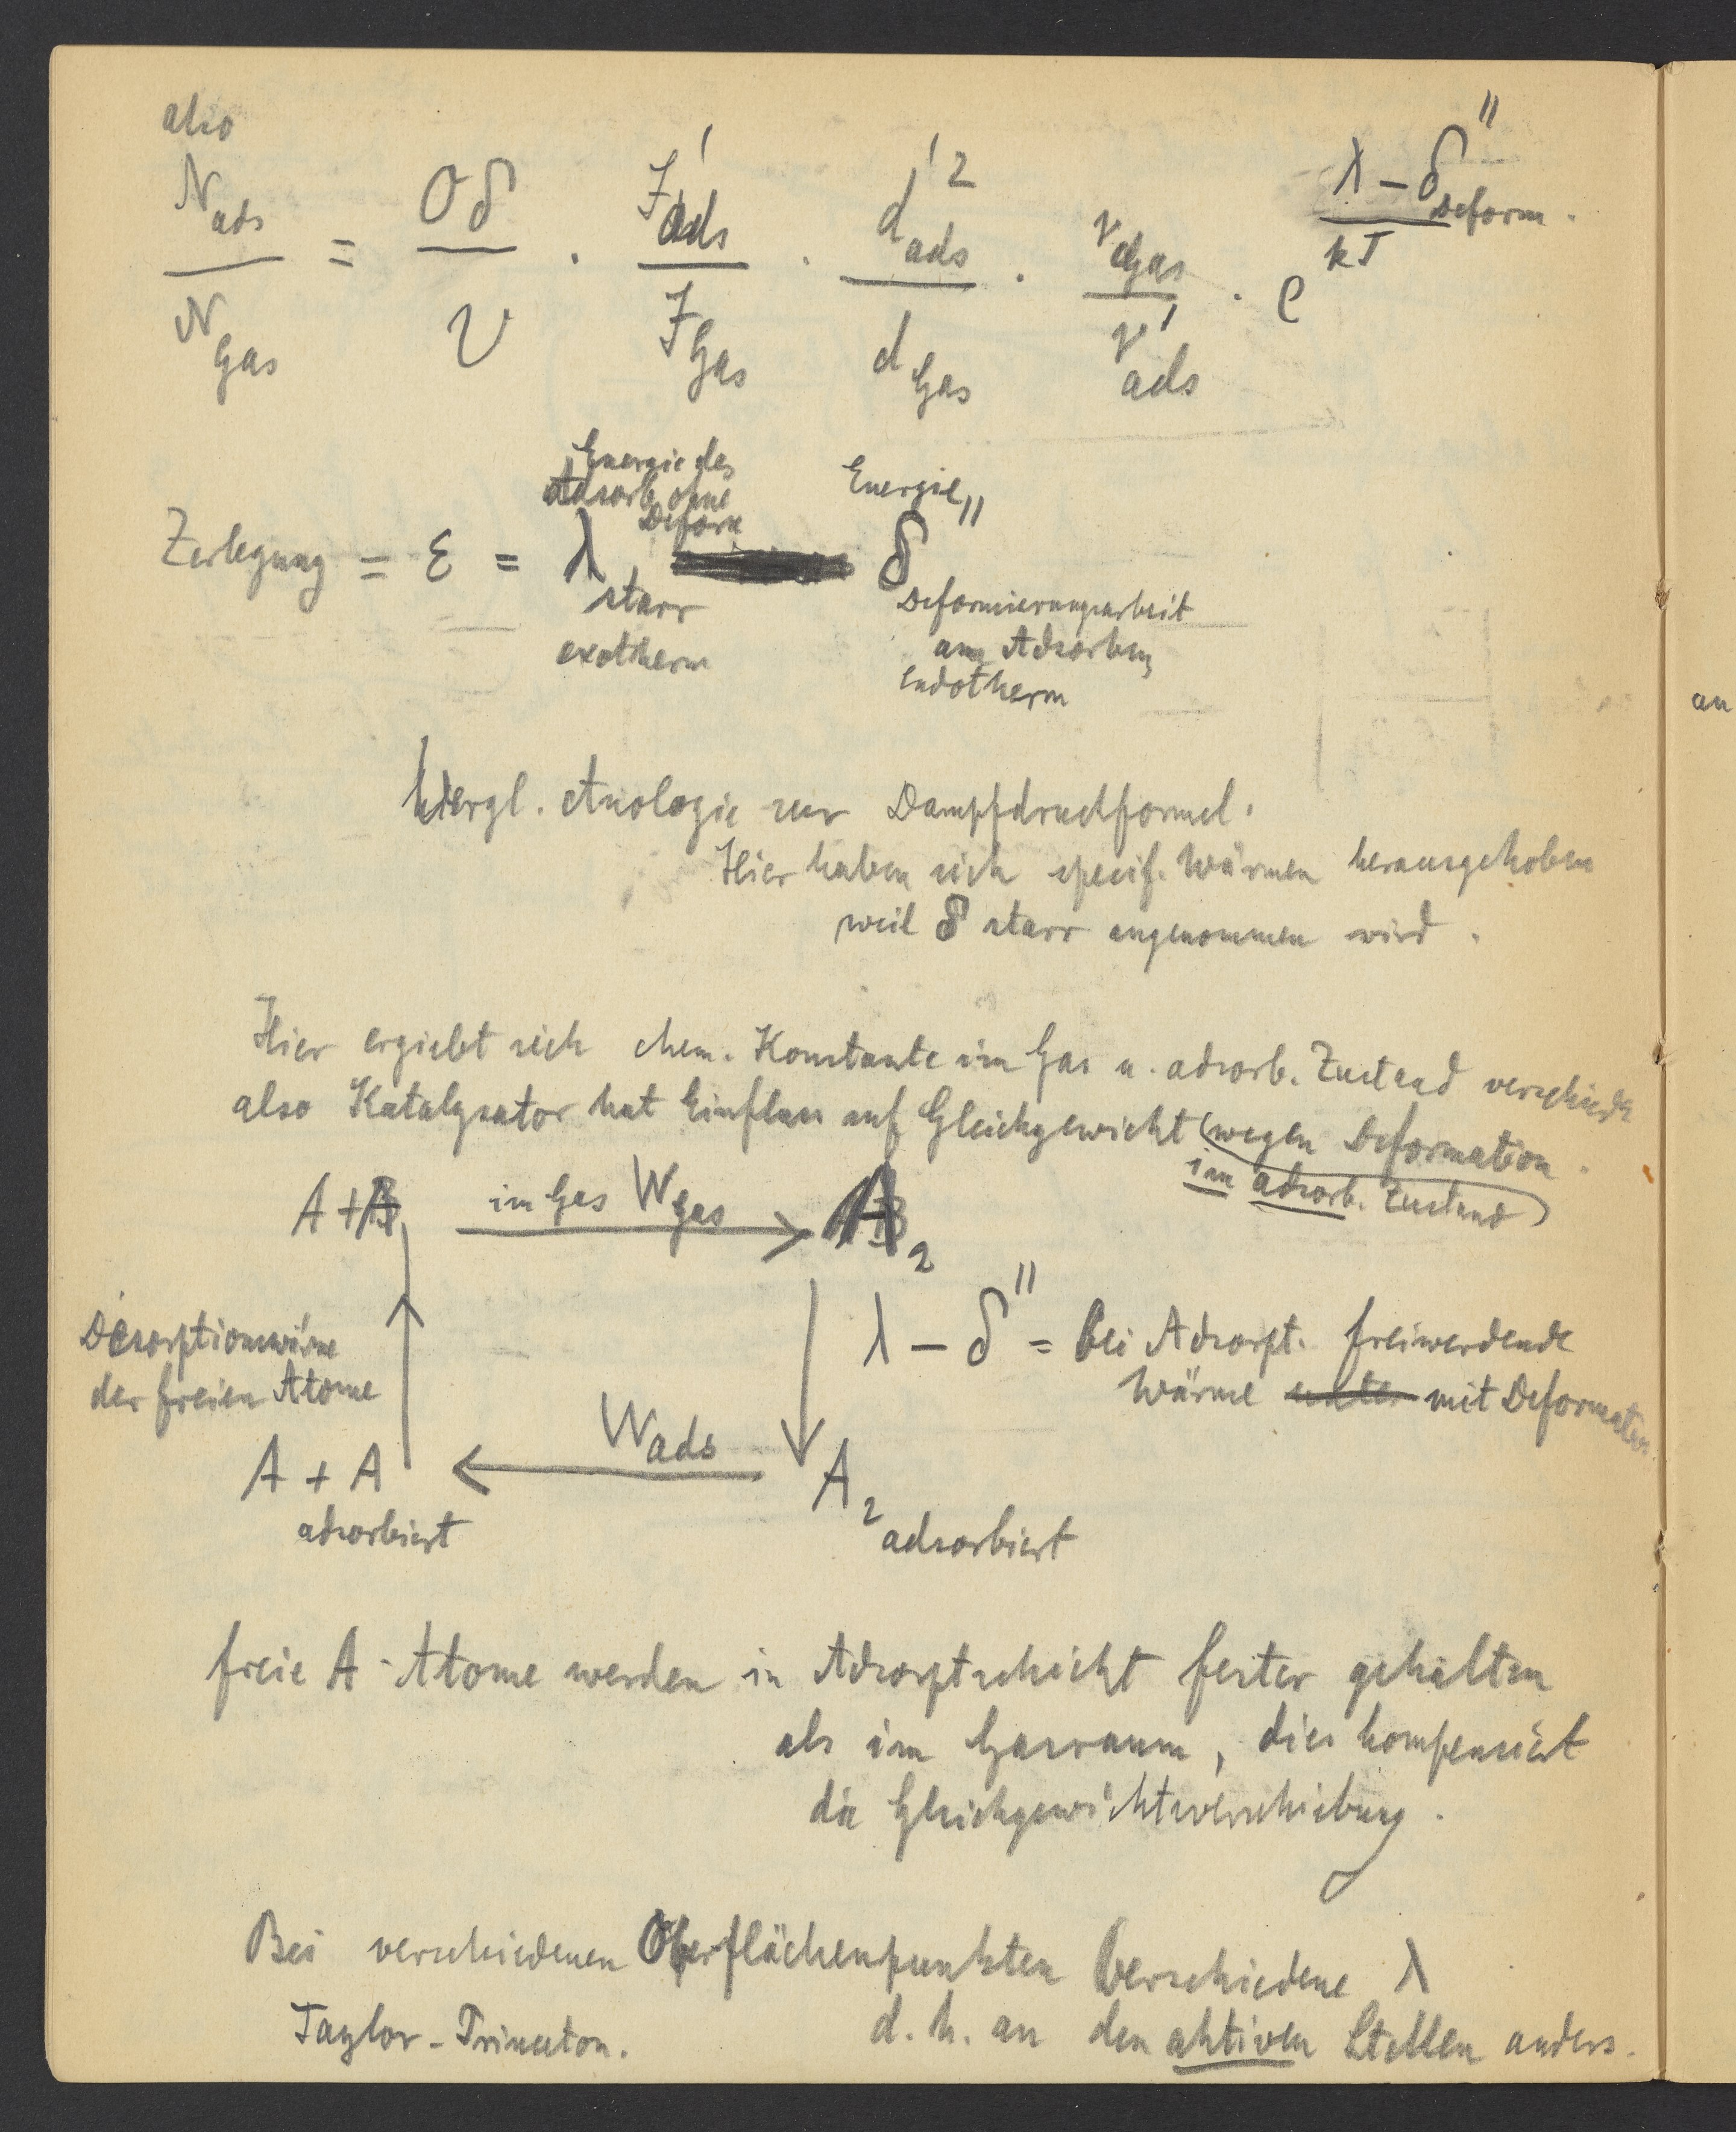 also
N_ads / N_Gas = Oδ / V · J'_ads / J_Gas · d'²_ads / d_Gas · ν_Gas / ν'_ads · e^((λ − δ''_Deform.) / kT)
Energie des Adsorb. ohne Deform
Energie
Zerlegung = ε = λ_starr δ''
exotherm
Deformierungsarbeit
am Adsorben,
endotherm
vergl. Anologie zur Dampfdruckformel.
Hier haben sich specif. Wärmen herausgehoben
weil δ starr angenommen wird.
Hier ergiebt sich chem. Konstante im Gas u. adsorb. Zustand verschieden
also Katalysator hat Einfluss auf Gleichgewicht (wegen Deformation.
im adsorb. Zustand)
A + A im Gas W_gas A₂
Desorptionswärme
der freien Atome
λ − δ'' = bei Adsorpt. freiwerdende
Wärme unter mit Deformation
W_ads
A + A A₂
adsorbiert adsorbiert
freie A-Atome werden in Adsorptschicht fester gehalten
als im Gasraum, dies kompensiert
die Gleichgewichtsverschiebung.
Bei verschiedenen Oberflächenpunkten verschiedene λ
Taylor - Princeton. d. h. an den aktiven Stellen anders.
an